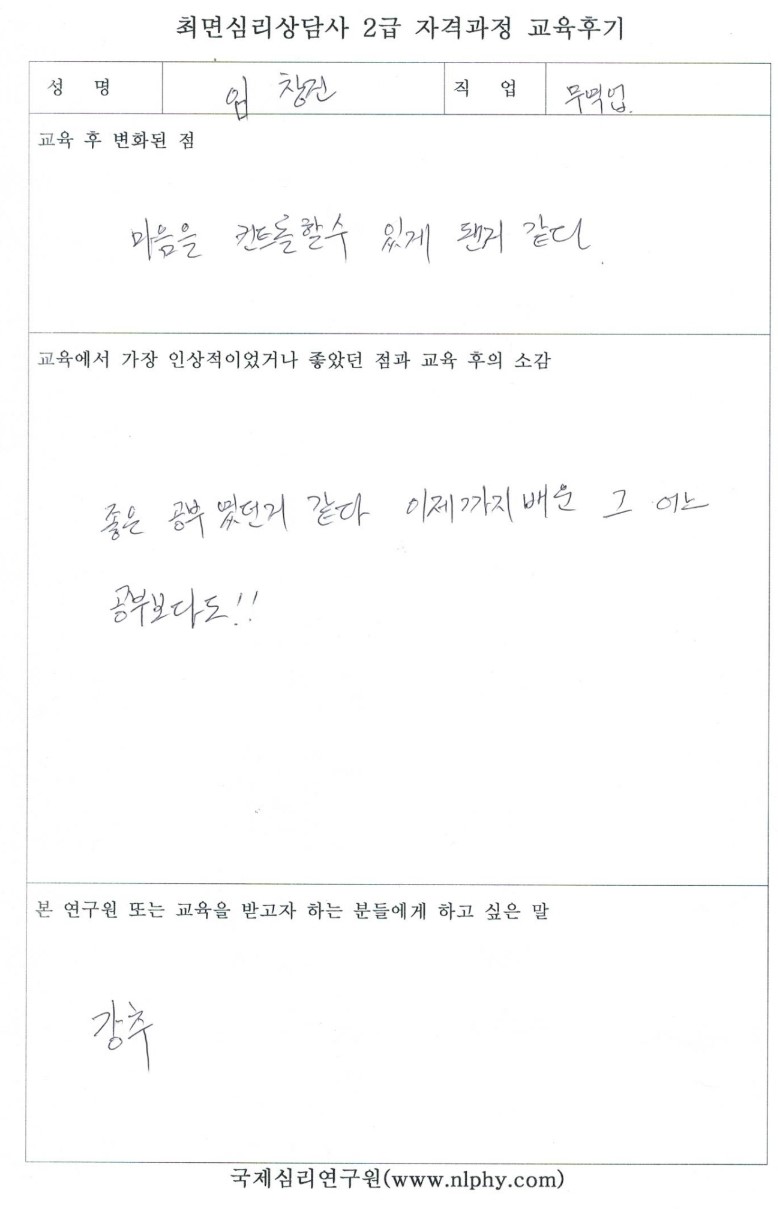 최면심리상담사 2급 자격과정 교육후기
성 명 임 창건 직 업 무역업.
교육 후 변화된 점
마음을 컨트롤할수 있게 됀거 같다.
교육에서 가장 인상적이었거나 좋았던 점과 교육 후의 소감
좋은 공부 였던거 같다 이제까지 배운 그 어느
공부보다도!!
본 연구원 또는 교육을 받고자 하는 분들에게 하고 싶은 말
강추
국제심리연구원(www.nlphy.com)